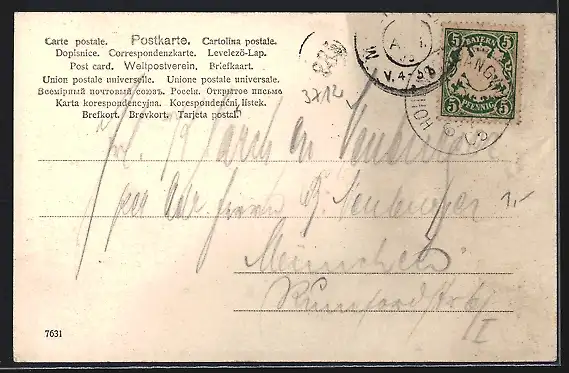 Carte postale. Postkarte. Cartolina postale.
Dopisnice. Correspondenzkarte. Levelező-Lap.
Post card. Weltpostverein. Briefkaart.
Union postale universelle. Unione postale universale.
Всемірный почтовый союзъ. Россія. Открытое письмо
Karta korespondencyjna. Korespondenční lístek.
Brefkort. Brevkort. Tarjeta postal.
3712
V. 4-5
BAYERN
5 5
5 PFENNIG 5
Neuburger
per Adr. Herrn S. Neuburger
1.-
München
Rumfordstr. 6/I
7631